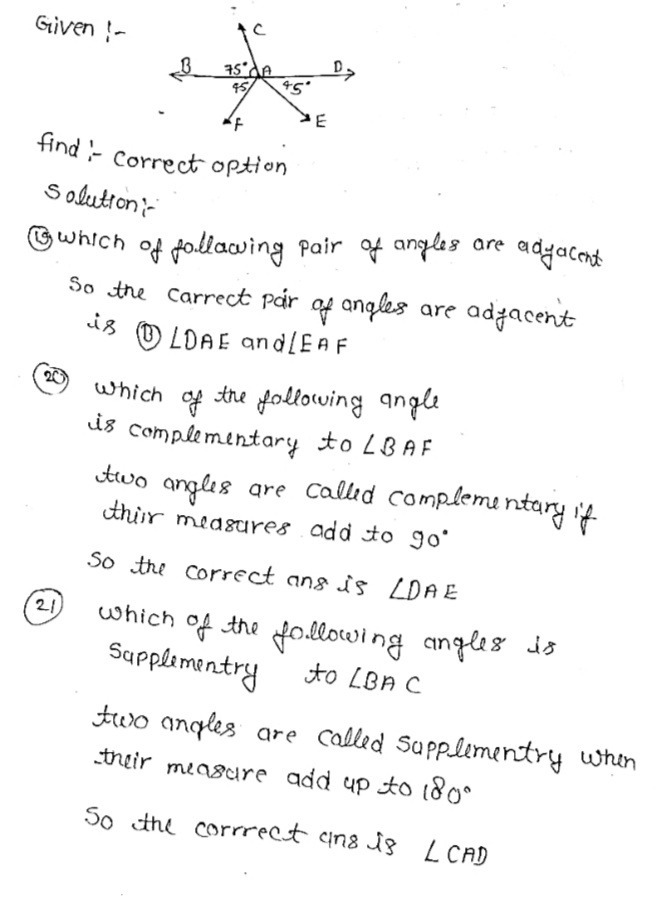 Given :-
C
B 75° A D
45 45°
F E
find :- correct option
Solution :-
(19) which of follawing pair of angles are adyacent
So the carrect pair of angles are adjacent
is (B) ∠DAE and ∠EAF
(20) which of the following angle
is complementary to ∠BAF
two angles are called complementary if
thiir measures add to 90°
So the correct ans is ∠DAE
(21) which of the following angles is
Sapplementry to ∠BAC
two angles are called sapplementry when
their measure add up to 180°
So the corrrect ans is ∠CAD